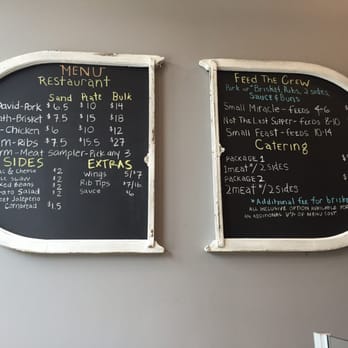 MENU
RESTAURANT
SAND PLATE BULK
DAVID-PORK $6.5 $10 $14
-BRISKET $7.5 $15 $18
-CHICKEN $6 $10 $12
-RIBS $7.5 $15.5 $27
-MEAT SAMPLER-PICK ANY 3
SIDES
& CHEESE $2
SLAW $2
BEANS $2
SALAD $2
JALAPENO
CORNBREAD $1.5
EXTRAS
WINGS 5/$7
RIB TIPS $7/lb
SAUCE $6
FEED THE CREW
PORK OR *BRISKET, RUBS, 2 SIDES,
SAUCE & BUNS
SMALL MIRACLE - FEEDS 4-6
NOT THE LAST SUPPER - FEEDS 8-10
SMALL FEAST - FEEDS 10-14
CATERING
PACKAGE 1
1 MEAT */2 SIDES
PACKAGE 2
2 MEAT */2 SIDES
*ADDITIONAL FEE FOR
ALL INCLUSIVE OPTION AVAILABLE FOR
AN ADDITIONAL % OF MENU COST